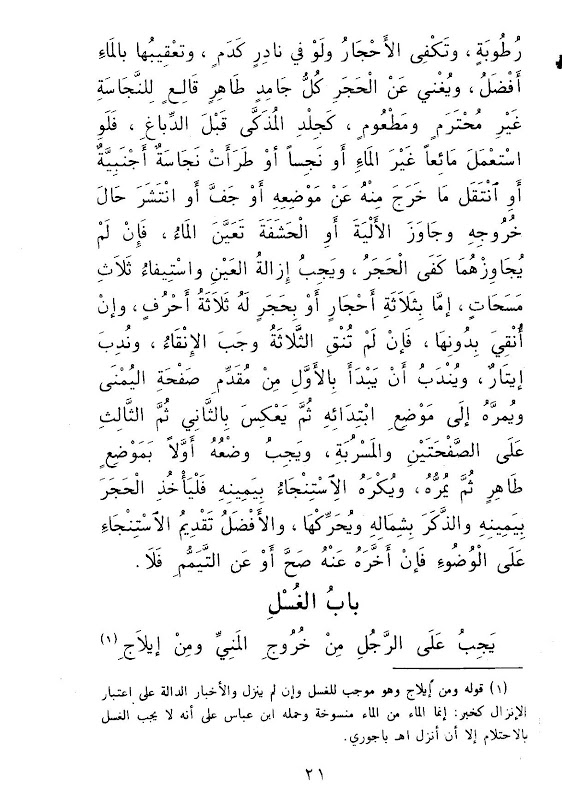 رُطُوبَةٍ ، وتَكْفِى الأَحْجَارُ ولَوْ في نادِرٍ كَدَمٍ ، وتعْقِيبُها بالمَاءِ
أَفْضَلُ ، ويُغْني عَنْ الْحَجَرِ كُلُّ جامِدٍ طَاهِرٍ قَالِعٍ لِلنَّجَاسَةِ
غَيْرِ مُحْتَرَمٍ ومَطْعُومٍ ، كَجِلْدِ المُذَكَّى قَبْلَ الدِّباغِ ، فَلَوِ
اسْتَعْمَلَ مَائِعاً غَيْرَ المَاءِ أو نَجِساً أوْ طَرَأَتْ نَجَاسَةٌ أَجْنَبِيَّةٌ
أَوِ ٱنْتَقَل مَا خَرَجَ مِنْهُ عَنْ مَوْضِعِهِ أَوْ جَفَّ أَو انْتَشَرَ حَالَ
خُرُوجِهِ وجَاوَزَ الأَلْيَةَ أَوِ الْحَشَفَةَ تَعَيَّنَ المَاءُ ، فَإِنْ لَمْ
يُجَاوِزْهُمَا كَفَى الْحَجَرُ ، ويَجِبُ إزالَةُ العَيْنِ واسْتِيفاءُ ثَلاَثِ
مَسَحَاتٍ ، إمَّا بِثَلاَثَةِ أحْجَارٍ أَوْ بِحَجَرٍ لَهُ ثَلاَثَةُ أَحْرُفٍ ، وإنْ
أُنْقِيَ بِدُونِهَا ، فَإنْ لَمْ تُنْقِ الثَّلاثَةُ وجَبَ الإِنْقَاءُ ، ونُدِبَ
إيتَارٌ ، ويُنْدَبُ أَنْ يَبْدَأَ بِالأَوَّلِ مِنْ مُقَدَّمِ صَفْحَةِ الْيُمْنَى
ويُمِرَّهُ إلَى مَوْضِعِ ابْتِدَائِهِ ثُمَّ يَعْكِسَ بِالثَّانِي ثُمَّ الثَّالِثِ
عَلَى الصَّفْحَتَيْنِ والمَسْرُبَةِ ، ويَجِبُ وضْعُهُ أَوَّلاً بَمَوْضِعٍ
طَاهِرٍ ثُمَّ يُمِرُّهُ ، ويُكْرَهُ الاِسْتِنْجَاءُ بِيَمِينِهِ فَلْيَأْخُذِ الْحَجَرَ
بِيَمِينِهِ والذَّكَرَ بِشِمَالِهِ ويُحَرِّكْهَا ، والأَفْضَلُ تَقْدِيمُ الاِسْتِنْجَاءِ
عَلَى الْوُضُوءِ فَإنْ أَخَّرَهُ عَنْهُ صَحَّ أَوْ عَنِ التَّيَمُّمِ فَلاَ .
بابُ الغُسْلِ
يَجِبُ عَلَى الرَّجُلِ مِنْ خُرُوجِ المَنِيِّ ومِنْ إيلاَجِ (١)
(١) قوله ومن إيلاج وهو موجب للغسل وإن لم ينزل والأخبار الدالة على اعتبار
الإنزال كخبر: إنما الماء من الماء منسوخة وحمله ابن عباس على أنه لا يجب الغسل
بالاحتلام إلا أن أنزل اهـ باجوري.
٢١